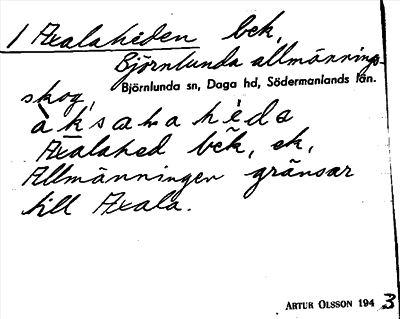 1 Axalaheden bek,
Björnlunda allmännings-
skog,
Björnlunda sn, Daga hd, Södermanlands län.
àksalahéda
Axalahed bek, ek,
Allmänningen gränsar
till Axala.
ARTUR OLSSON 1943